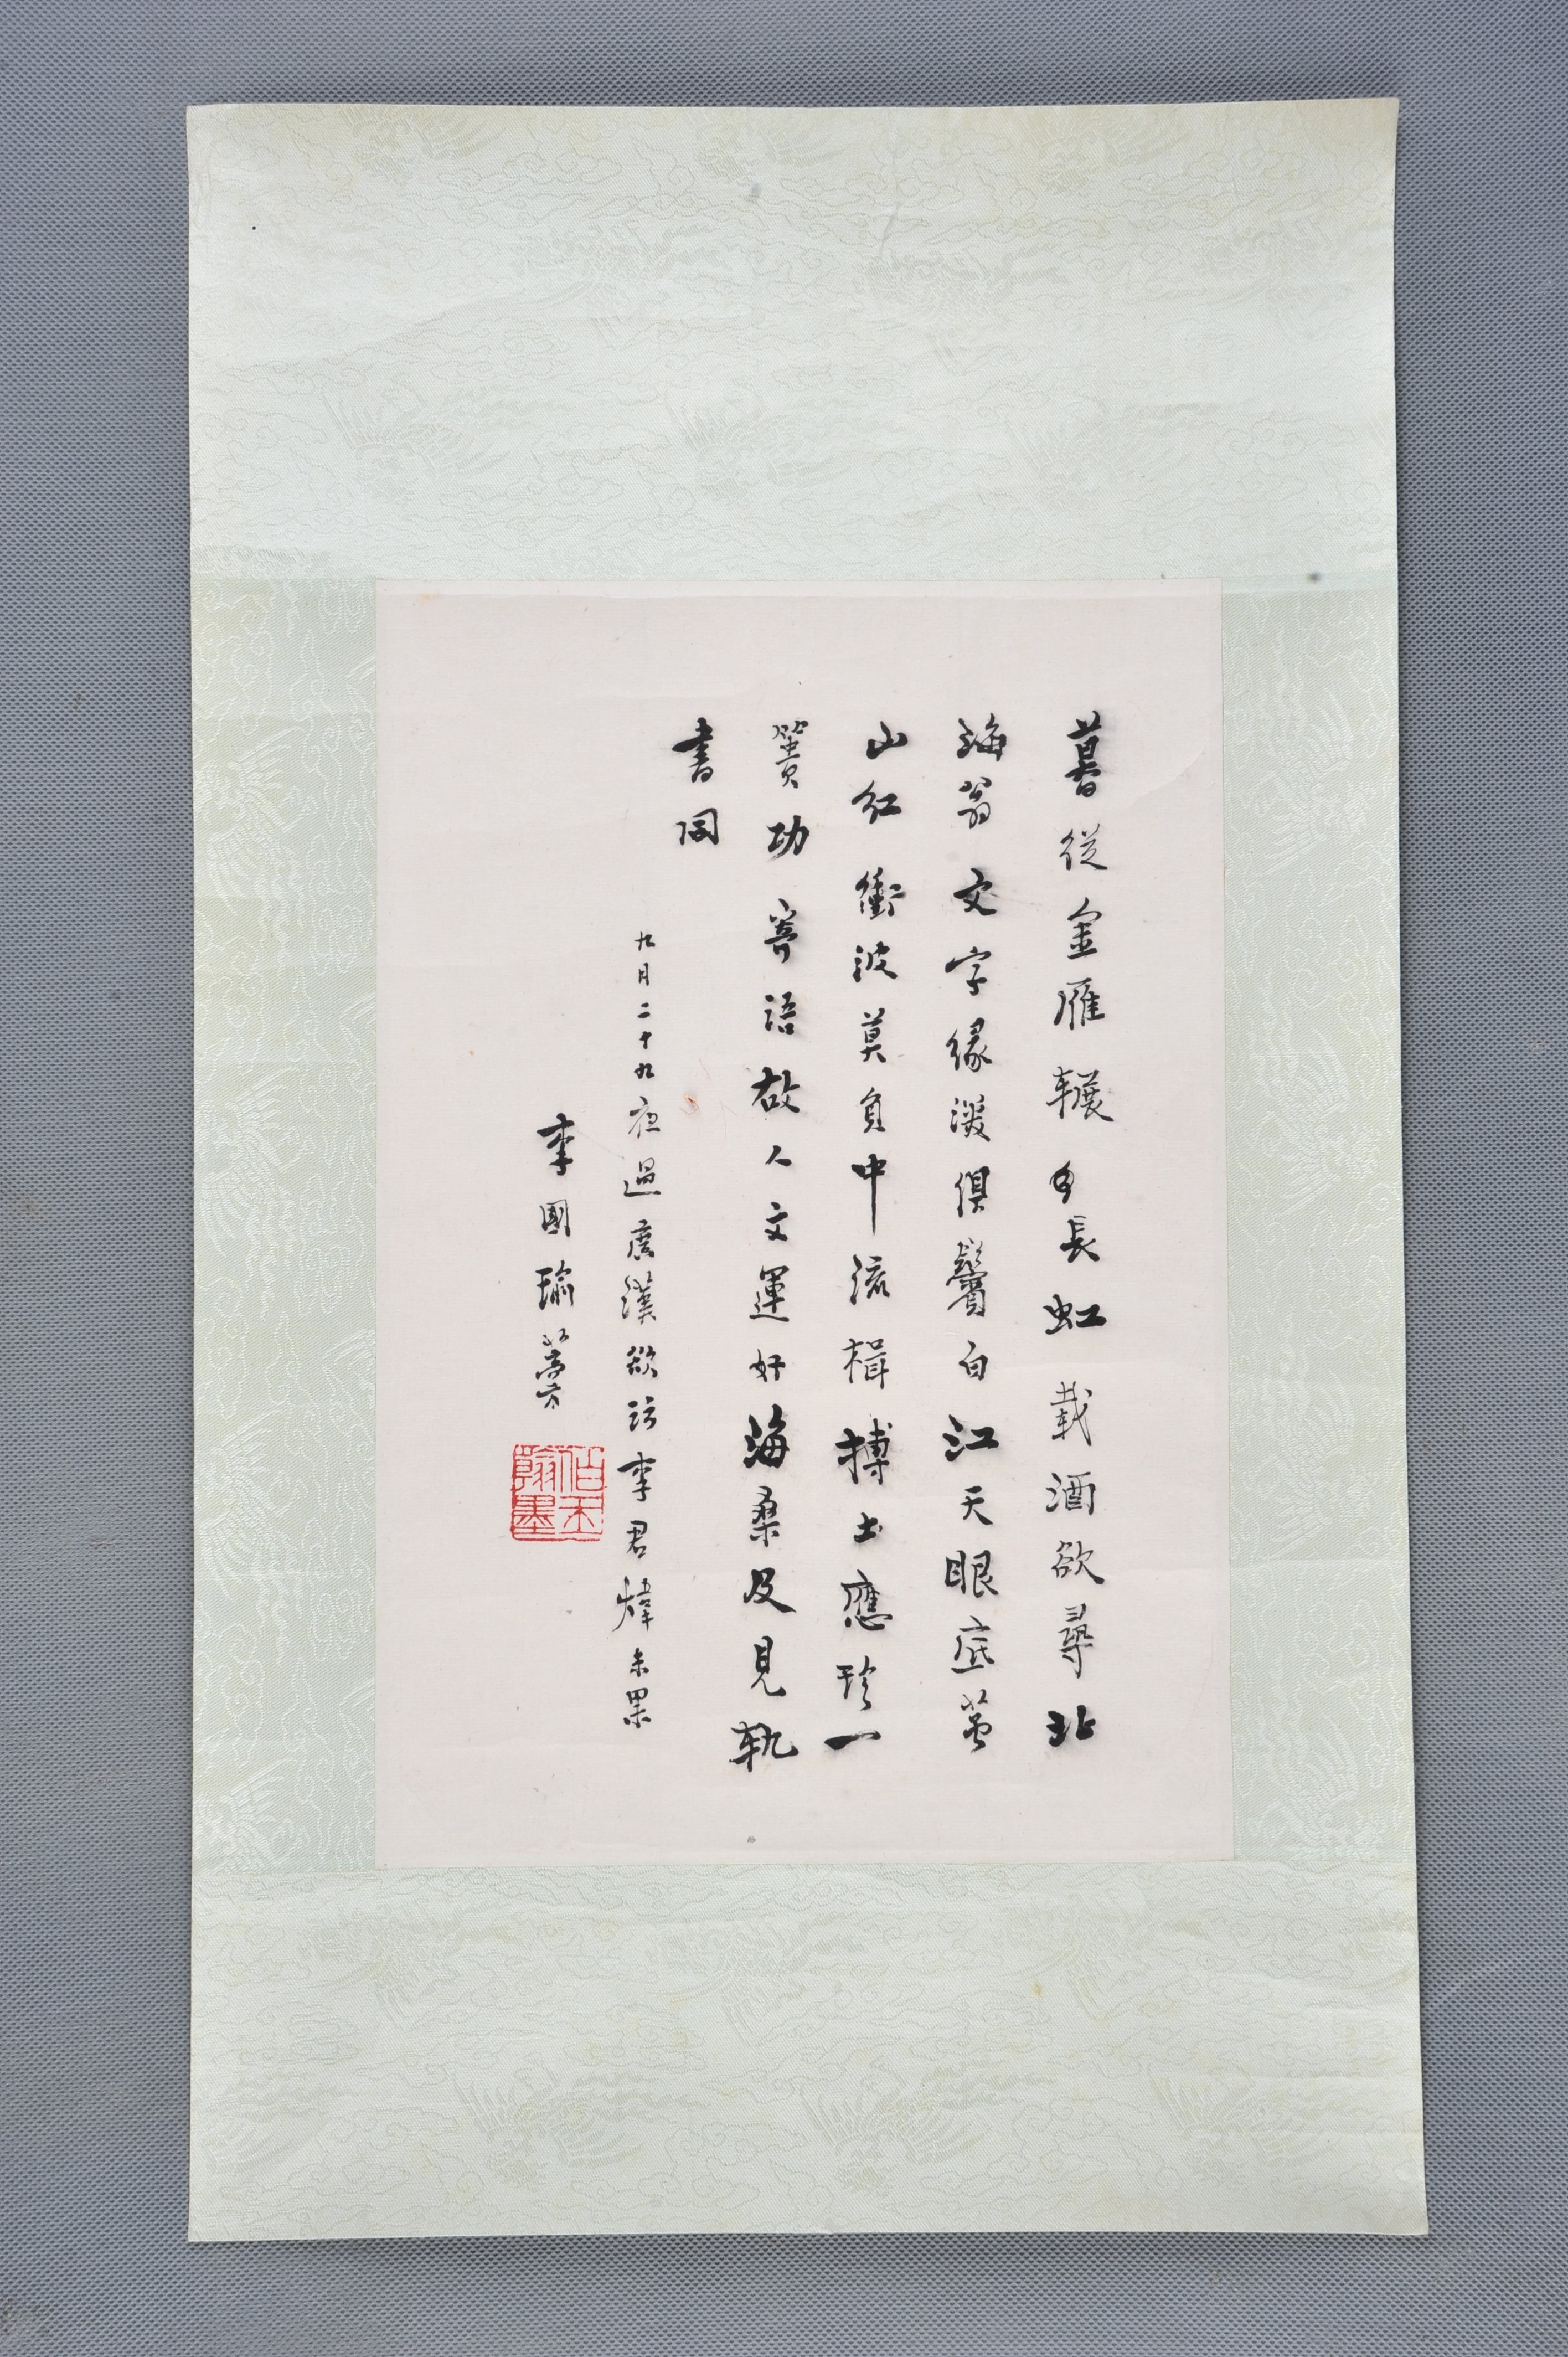 暮從金雁輾長虹載酒欲尋北
海翁文字緣深俱鬢白江天眼底萬
山紅衝波莫負中流楫摶土應珍一
簣功寄語故人文運好海桑及見軌
書同
九月二十九夜過廣漢欲訪李君煒未果
李國瑜
伯玉翰墨